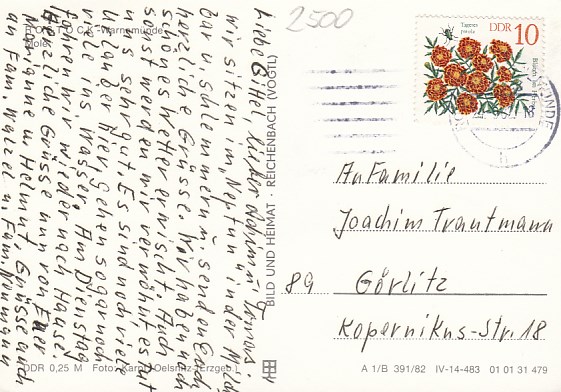 2500
ROSTOCK-Warnemünde
Mole
Liebe
Wir sitzen in „Neptun" in der Mole-
bar u. schlemmern u. senden Euch
herzlich Grüsse. Wir haben noch
schönes Wetter erwischt. Auch
sonst werden wir verwöhnt es tut
uns sehr gut. Es sind noch viele
Urlauber hier, gehen sogar noch
viele ins Wasser. Am Dienstag
fahren wir wieder nach Hause.
Herzliche Grüsse nun von Euer
Marianne u. Helmut. Grüsse auch
an Fam. u. Fam. Naumann
DDR 0,25 M Foto: Karol, Oelsnitz (Erzgeb.)
BILD UND HEIMAT · REICHENBACH (VOGTL)
Tagetes
patula
DDR 10
An Familie
Joachim Trautmann
89 Görlitz
Kopernikus-Str. 18
A 1/B 391/82 IV-14-483 01 01 31 479